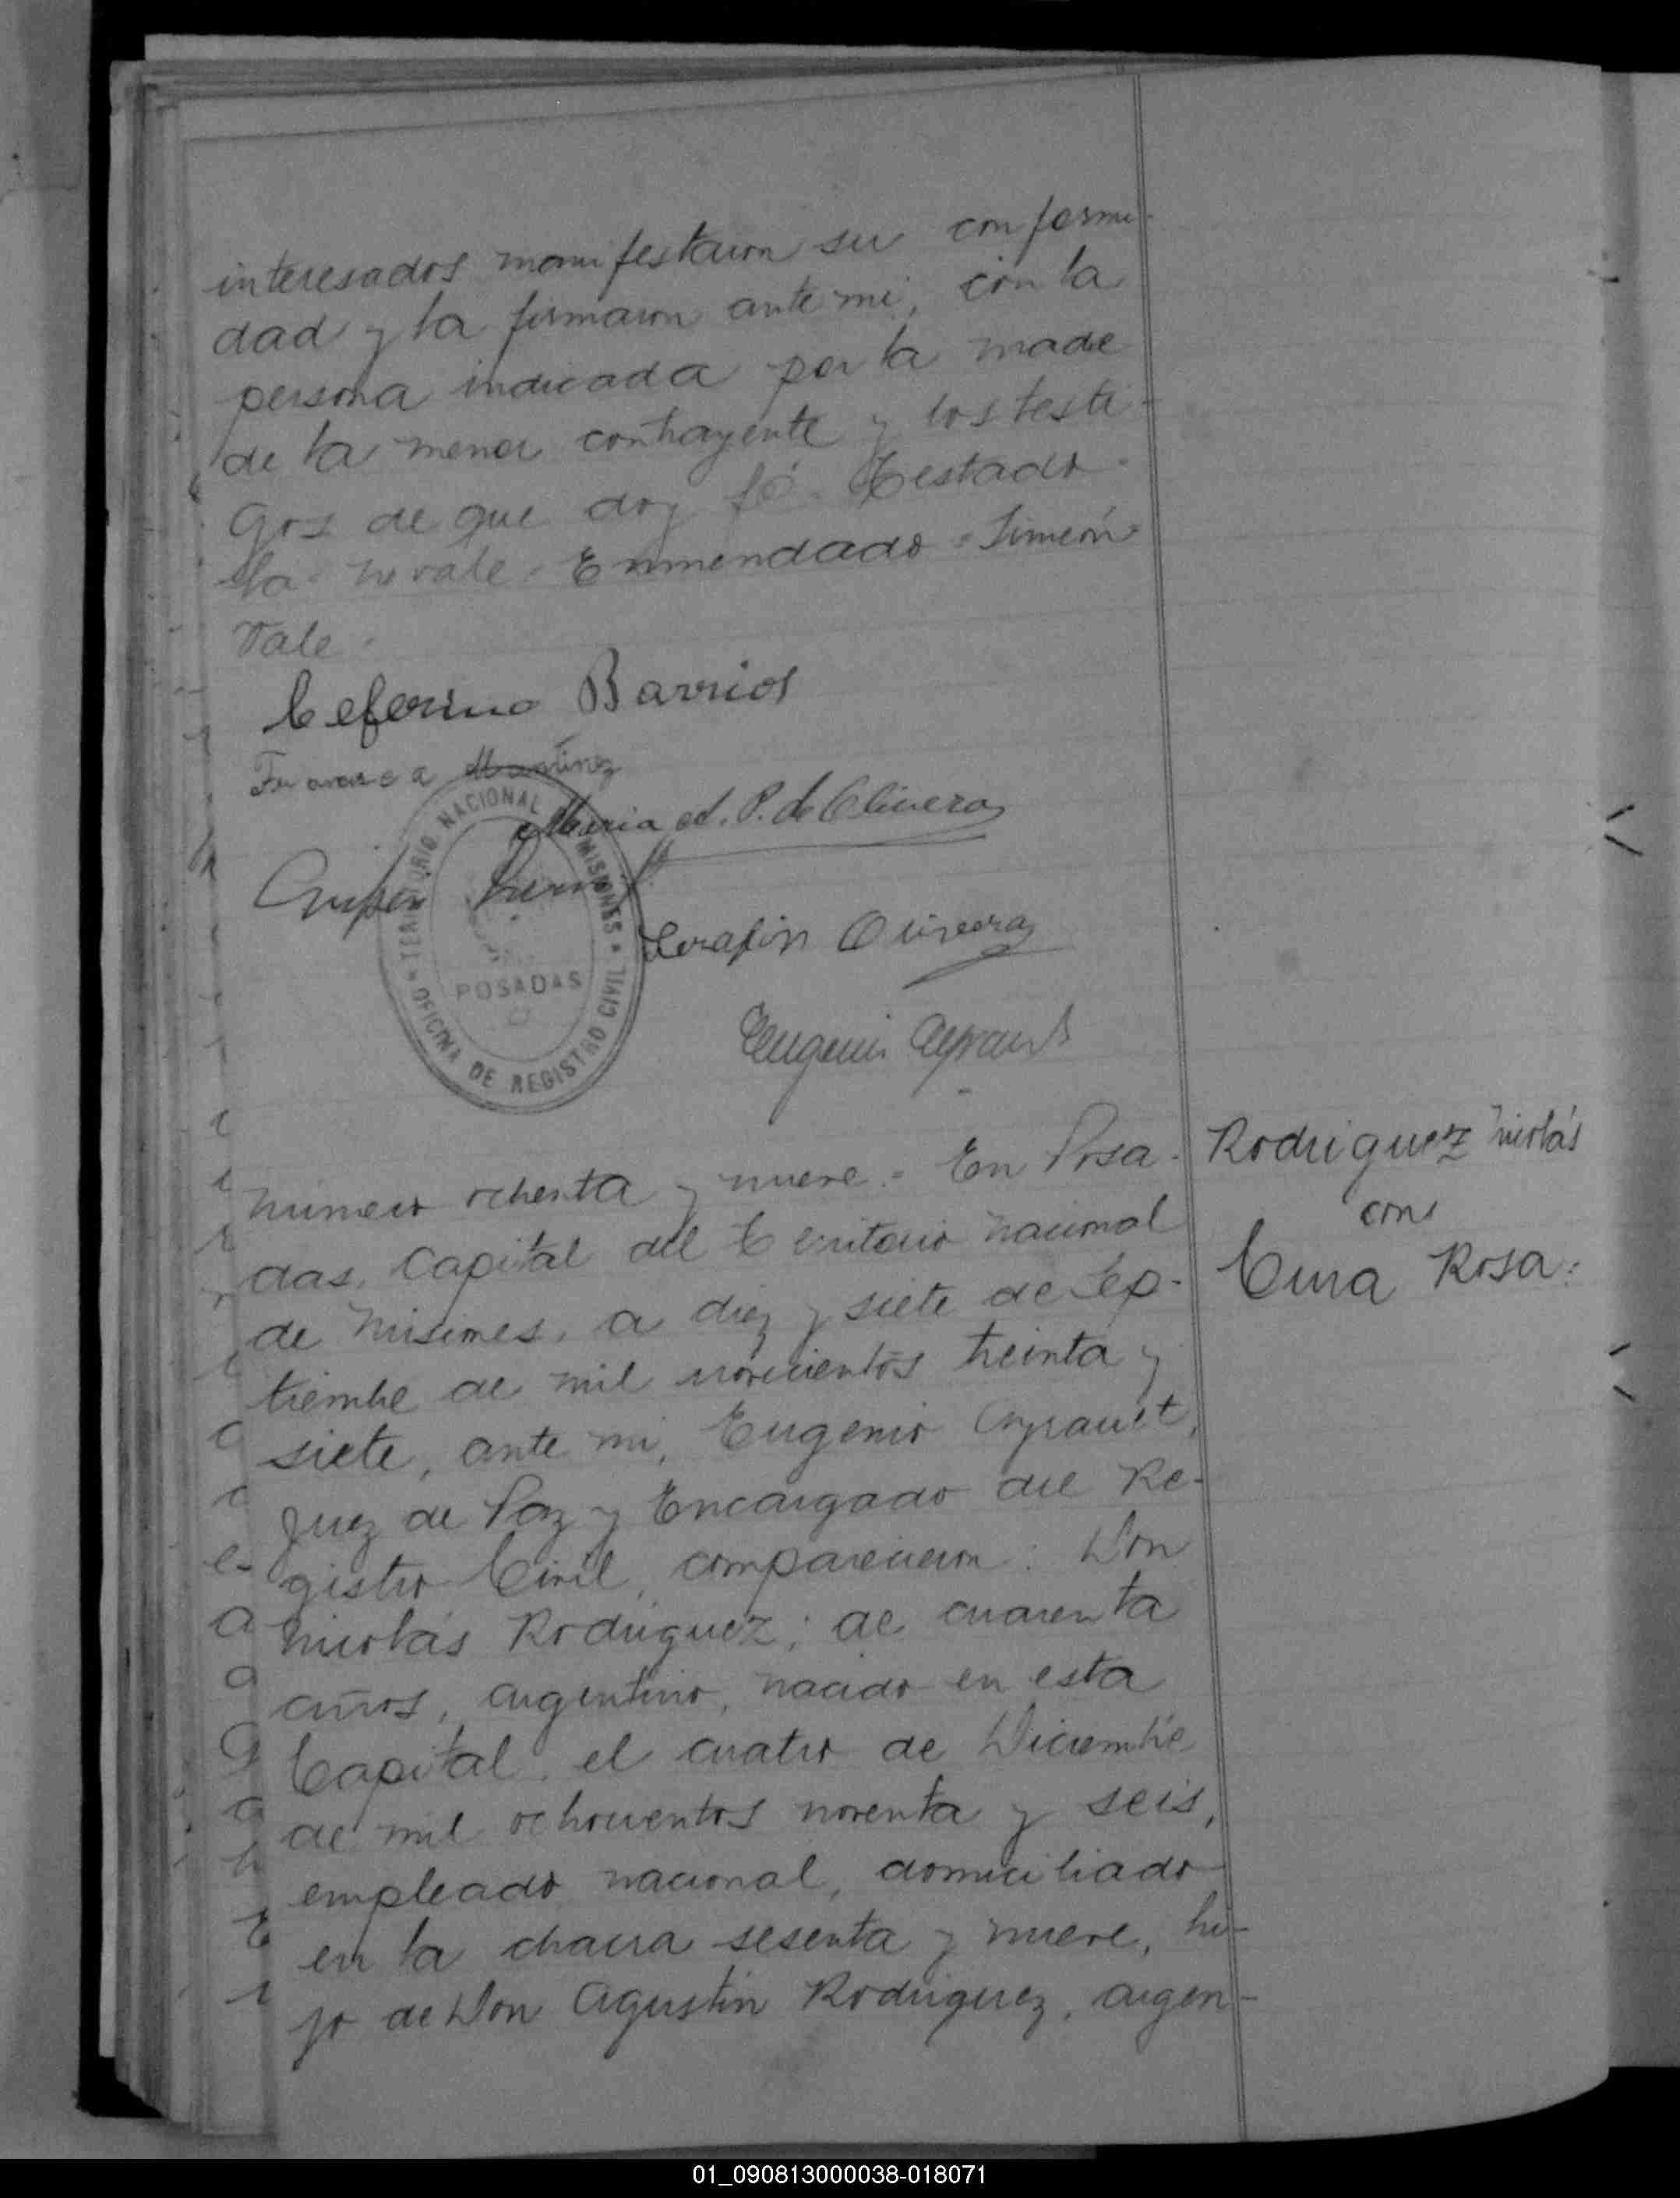 interesados manifestaron su conformi-
dad y la firmaron ante mi, con la
persona indicada por la madre
de la menor contrayente y los testi-
gos de que doy fé. Testado
la no vale. Enmendado = Simeón
Vale.
Ceferino Barrios
Francisca Martinez
Maria d. P. de Olivera
Serafin Olivera
Eugenio Ayrault
TERRITORIO NACIONAL MISIONES
POSADAS
OFICINA DE REGISTRO CIVIL
Número ochenta y nueve. - En Posa-
das, Capital del Territorio Nacional
de Misiones, a diez y siete de Sep-
tiembre de mil novecientos treinta y
siete, ante mi, Eugenio Ayrault,
Juez de Paz y Encargado del Re-
gistro Civil, comparecieron: Don
Nicolás Rodríguez; de cuarenta
años, argentino, nacido en esta
Capital, el cuatro de Diciembre
de mil ochocientos noventa y seis,
empleado nacional, domiciliado
en la chacra sesenta y nueve, hi-
jo de Don Agustín Rodríguez, argen-
Rodriguez Nicolás
con
Rosa.
01_090813000038-018071